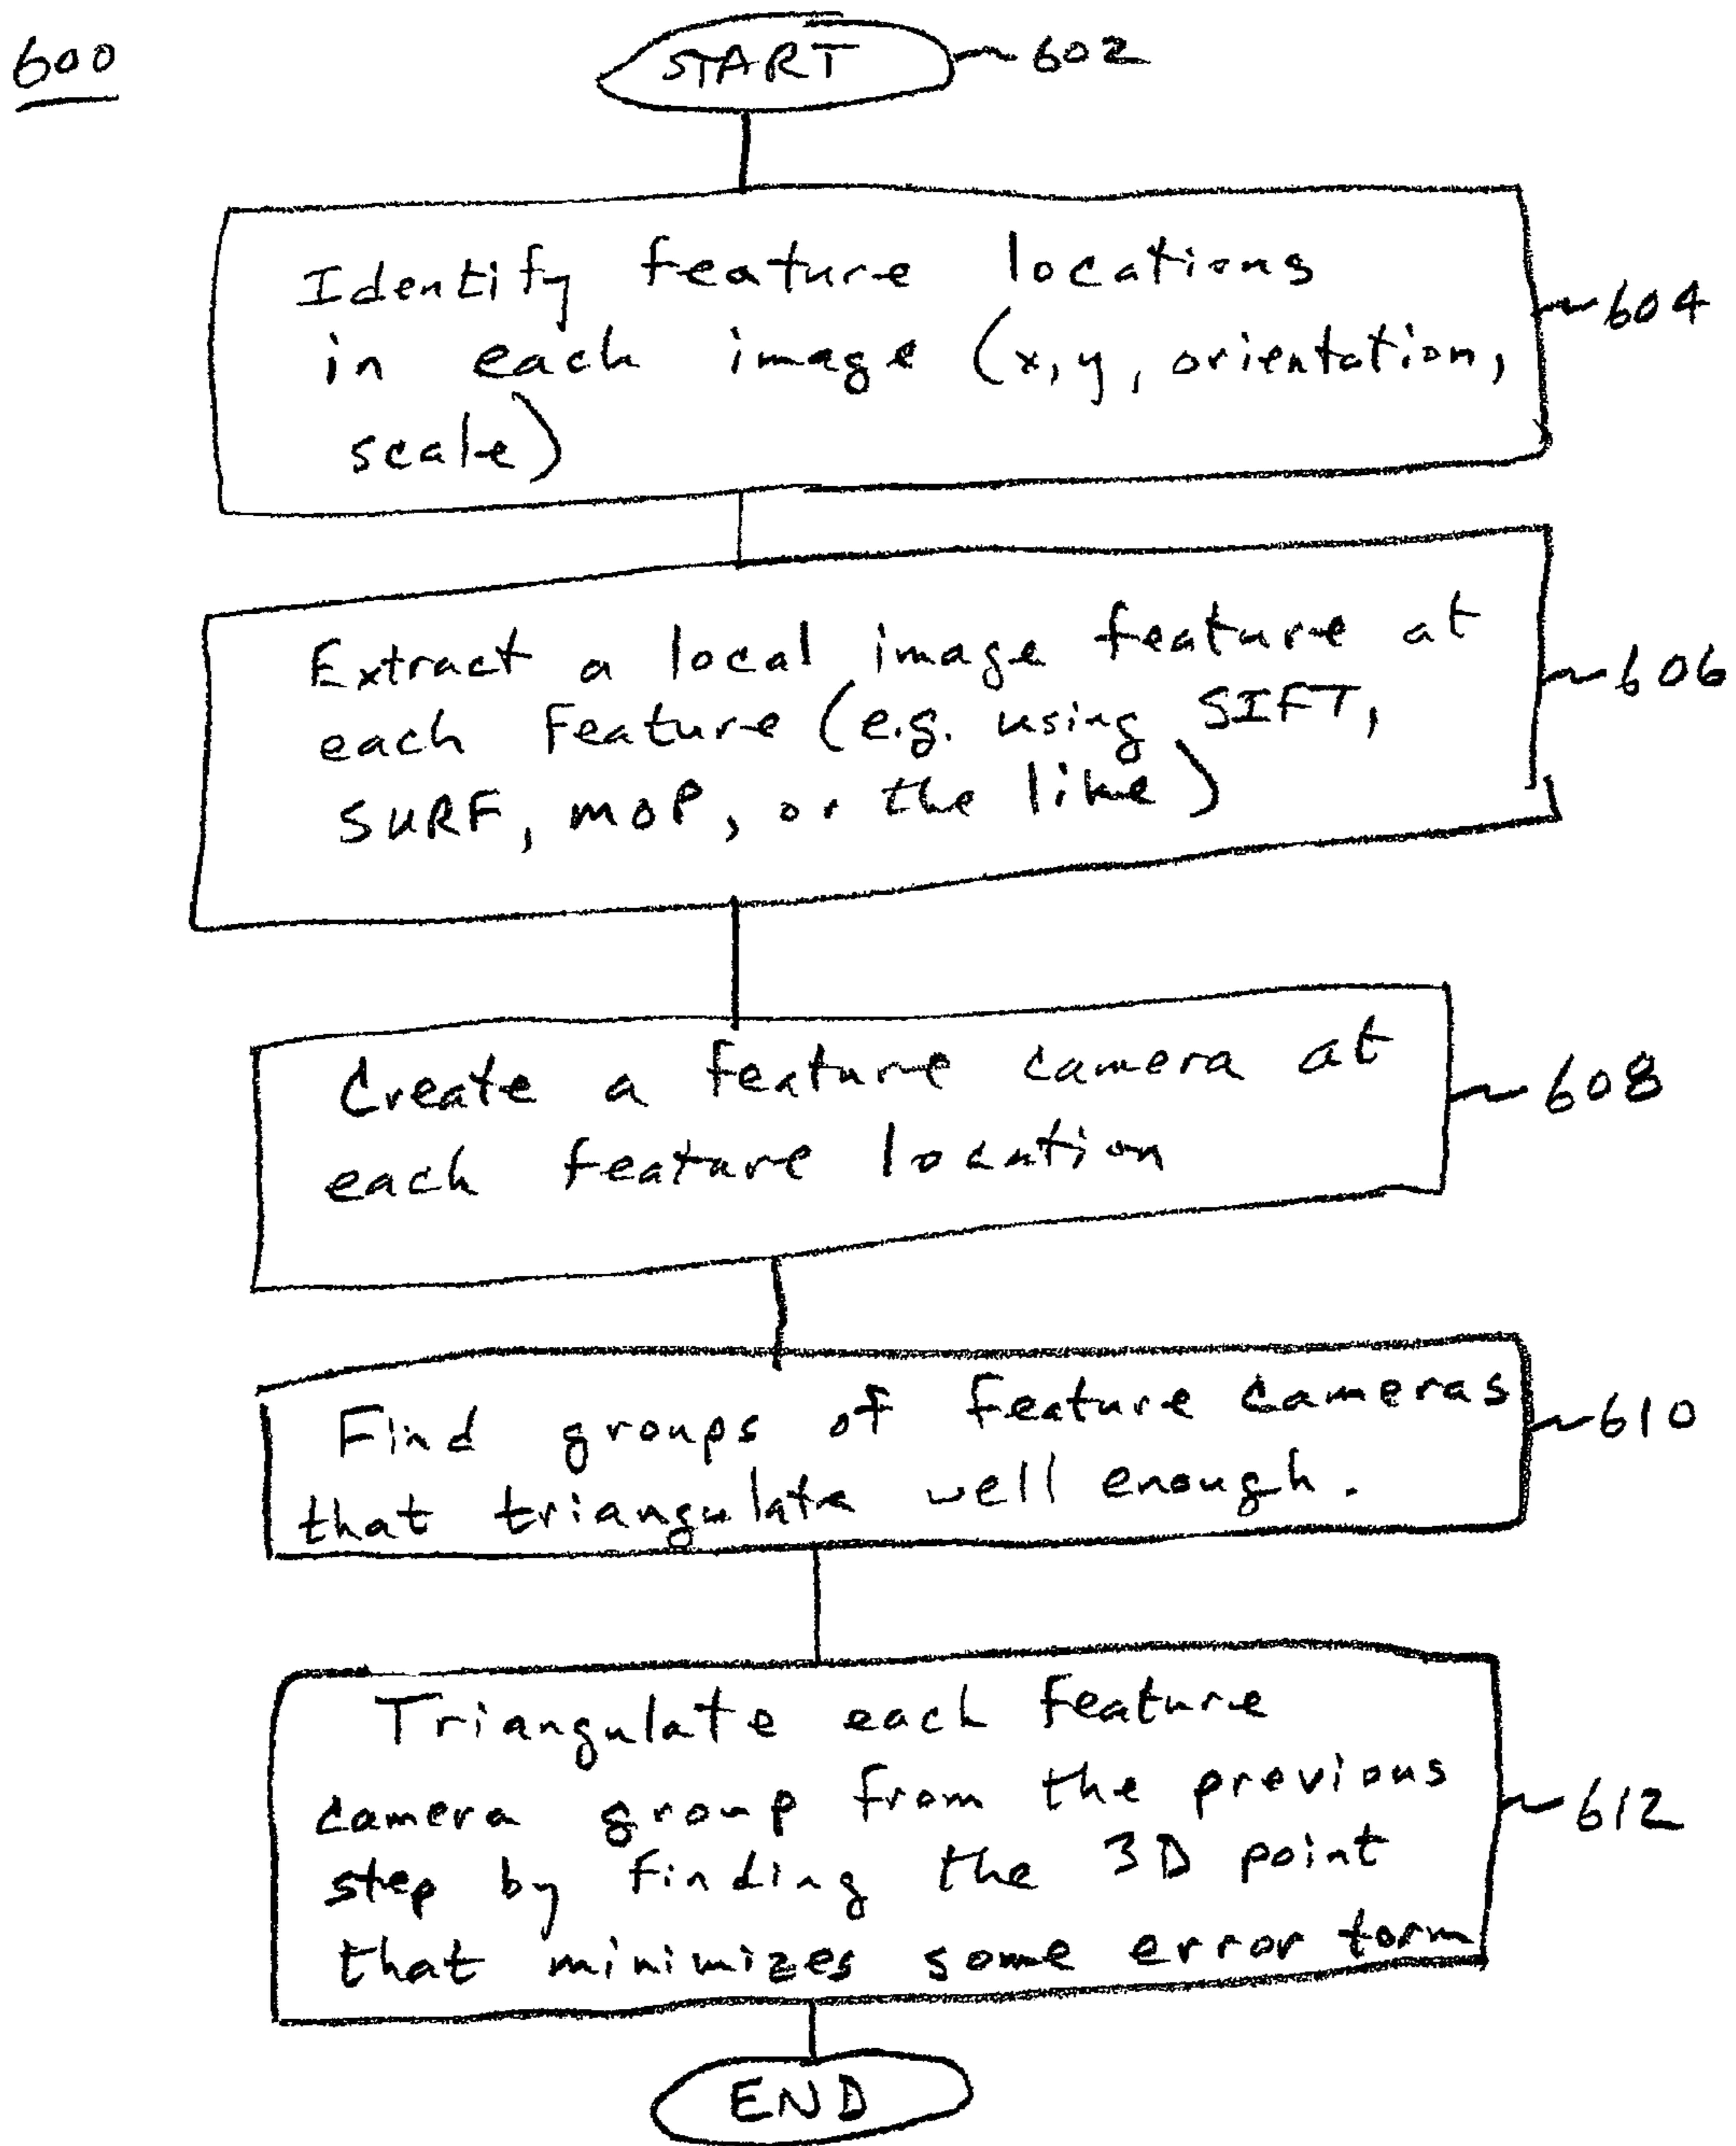 600
START
602
Identify feature locations
in each image (x, y, orientation,
scale)
604
Extract a local image feature at
each feature (e.g. using SIFT,
SURF, MOP, or the like)
606
Create a feature camera at
each feature location
608
Find groups of feature cameras
that triangulate well enough.
610
Triangulate each feature
camera group from the previous
step by finding the 3D point
that minimizes some error term
612
END